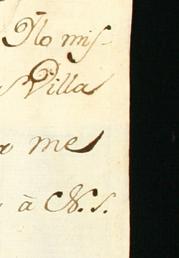 No mis-
Villa
me
à N. S.